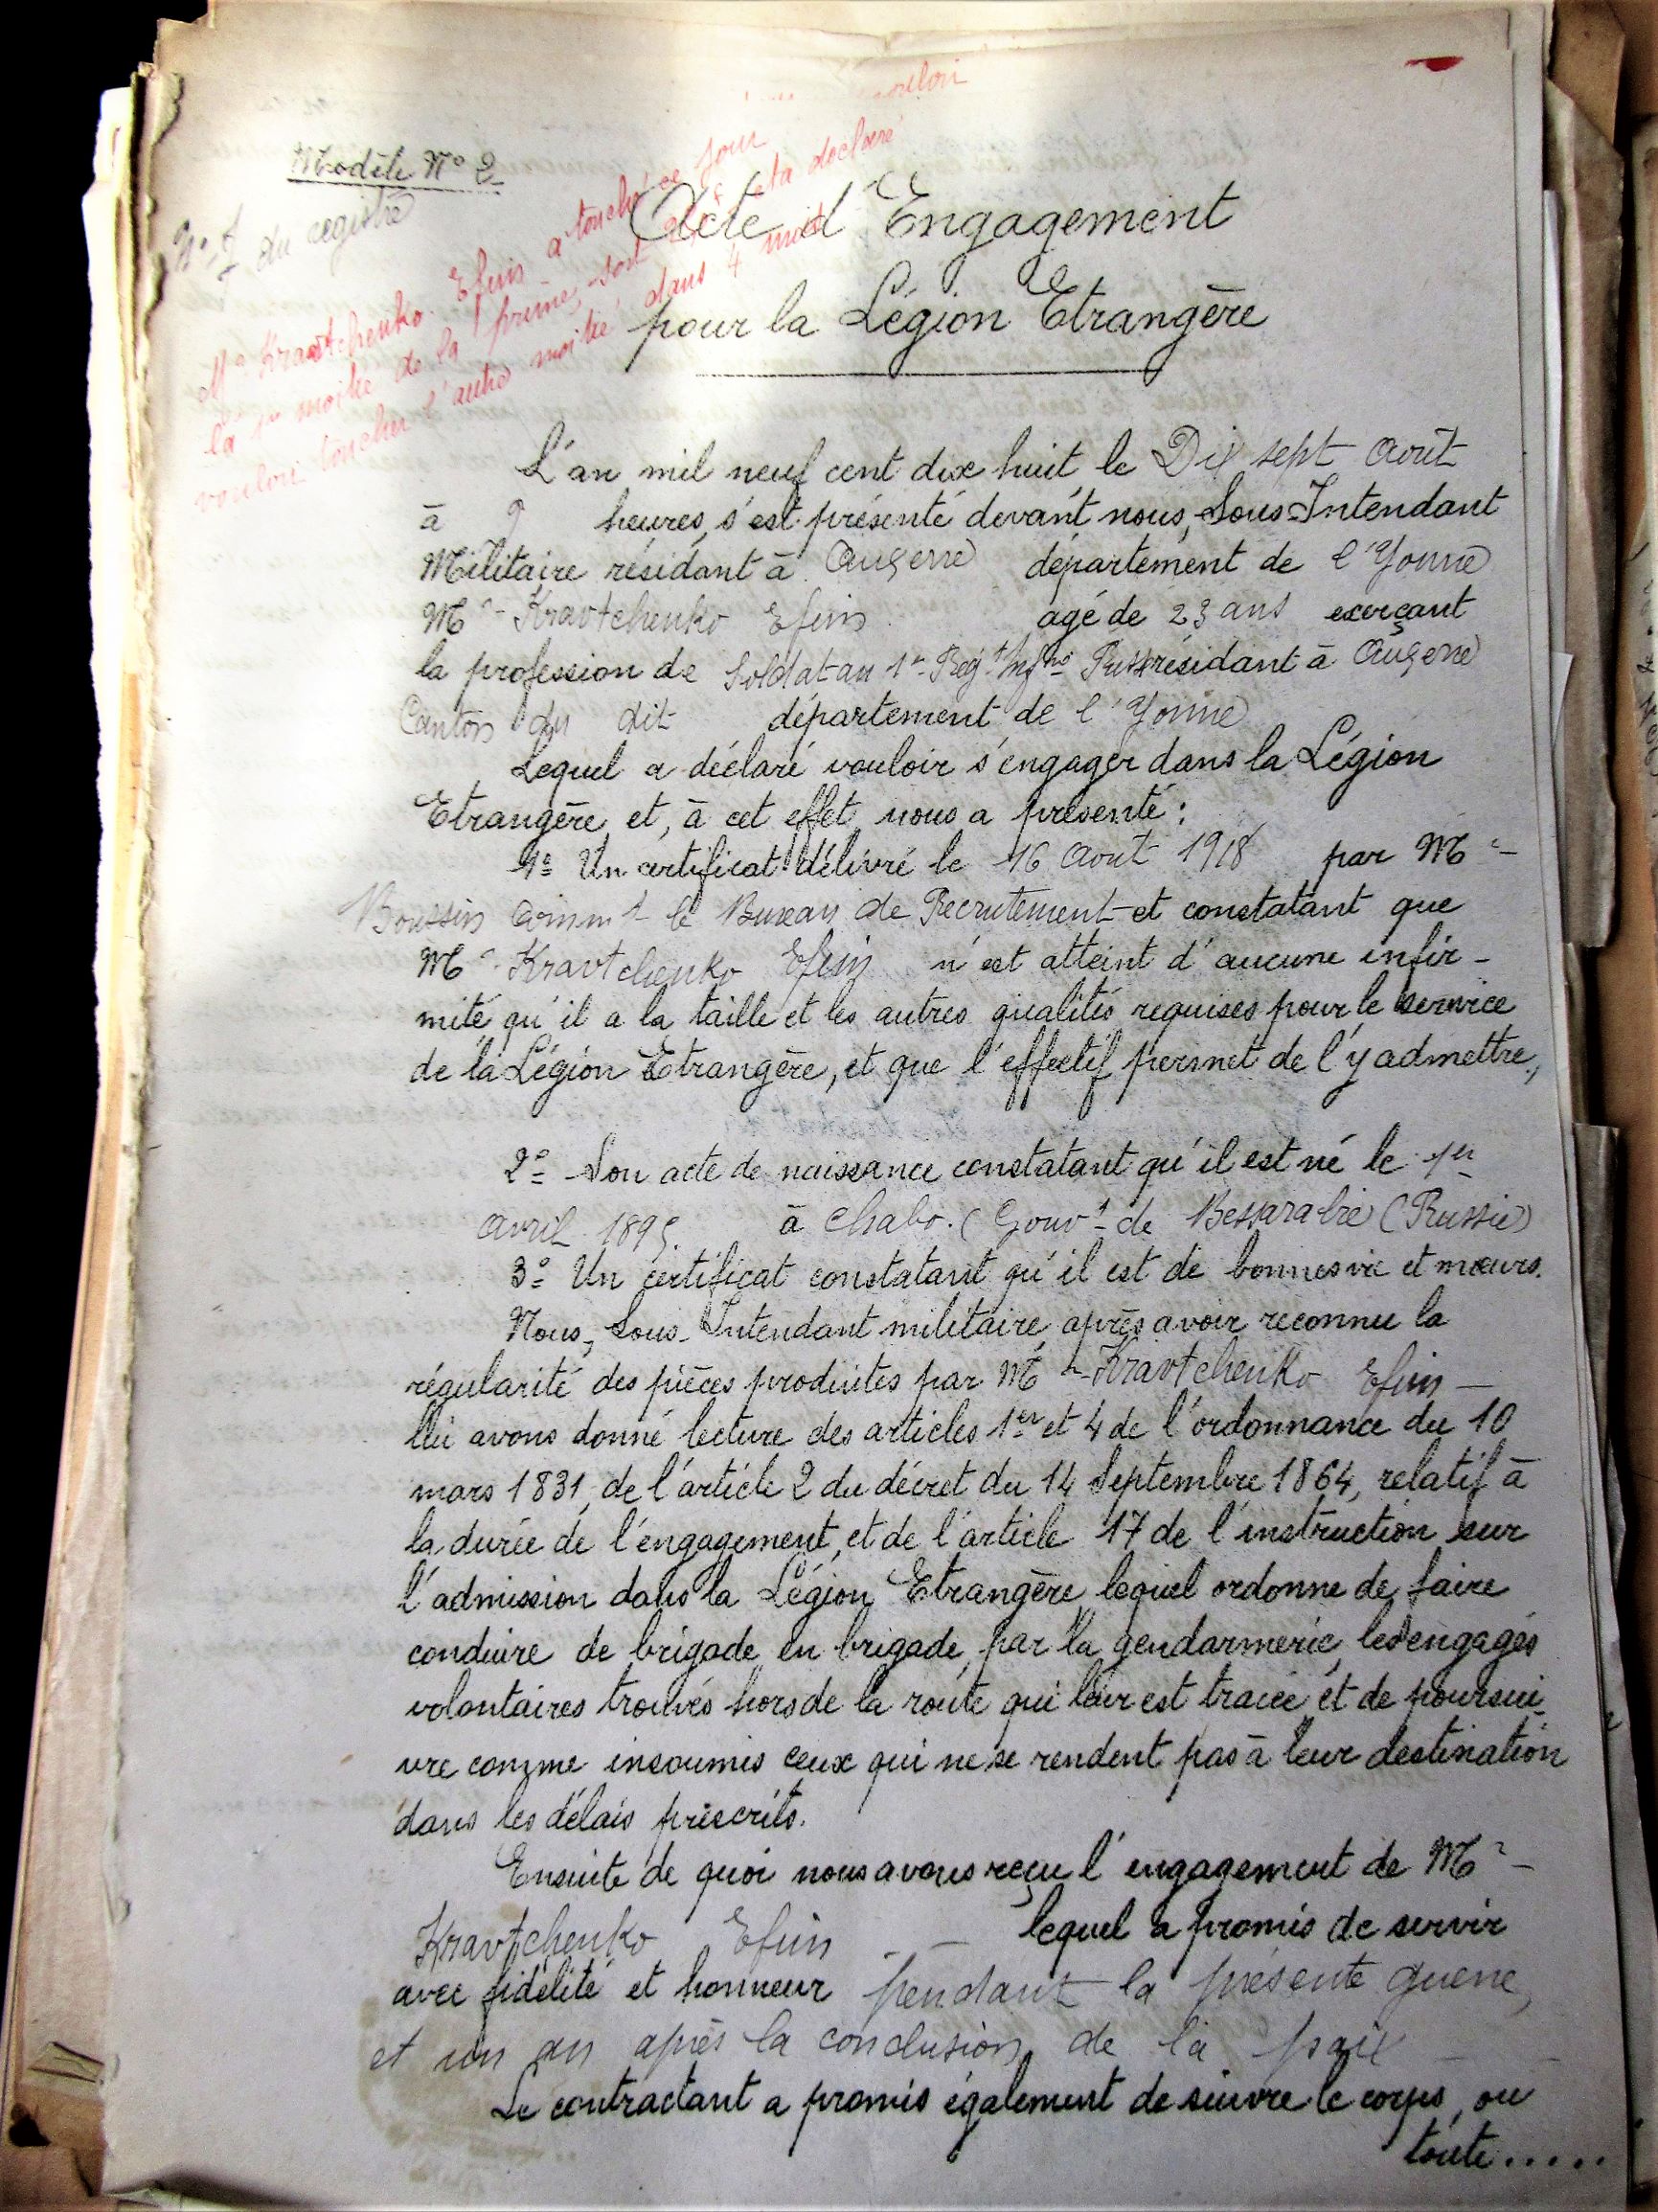 Modèle N° 2
N° du registre
vouloir
Mr Kravtchenko Efim a touché ce jour
la 1re moitié de la prime, soit et a déclaré
vouloir toucher l'autre moitié dans 4 mois
Acte d'Engagement
pour la Légion Etrangère
L'an mil neuf cent dix huit, le Dix sept Août
à 9 heures, s'est présenté devant nous, Sous-Intendant
Militaire résidant à Auxerre département de l'Yonne
Mr Kravtchenko Efim agé de 23 ans exerçant
la profession de Soldat au 1er Régt Infrie Russe résidant à Auxerre
Canton du dit département de l'Yonne
Lequel a déclaré vouloir s'engager dans la Légion
Etrangère et, à cet effet nous a présenté :
1° Un certificat délivré le 16 Août 1918 par Mr
Boussin Commt le Bureau de Recrutement et constatant que
Mr Kravtchenko Efim n'est atteint d'aucune infir-
mité, qu'il a la taille et les autres qualités requises pour le service
de la Légion Etrangère, et que l'effectif permet de l'y admettre,
2° Son acte de naissance constatant qu'il est né le 1er
avril 1895 à Chabo. (Gouvt de Bessarabie (Russie)
3° Un certificat constatant qu'il est de bonnes vie et mœurs.
Nous, Sous-Intendant militaire, après avoir reconnu la
régularité des pièces produites par Mr Kravtchenko Efim
lui avons donné lecture des articles 1er et 4 de l'ordonnance du 10
mars 1831, de l'article 2 du décret du 14 Septembre 1864, relatif à
la durée de l'engagement, et de l'article 17 de l'instruction sur
l'admission dans la Légion Etrangère, lequel ordonne de faire
conduire de brigade en brigade, par la gendarmerie, les engagés
volontaires trouvés hors de la route qui leur est tracée et de poursui-
vre comme insoumis ceux qui ne se rendent pas à leur destination
dans les délais prescrits.
Ensuite de quoi nous avons reçu l'engagement de Mr
Kravtchenko Efim lequel a promis de servir
avec fidélité et honneur pendant la présente guerre,
et un an après la conclusion de la paix
Le contractant a promis également de suivre le corps, ou
toute.....